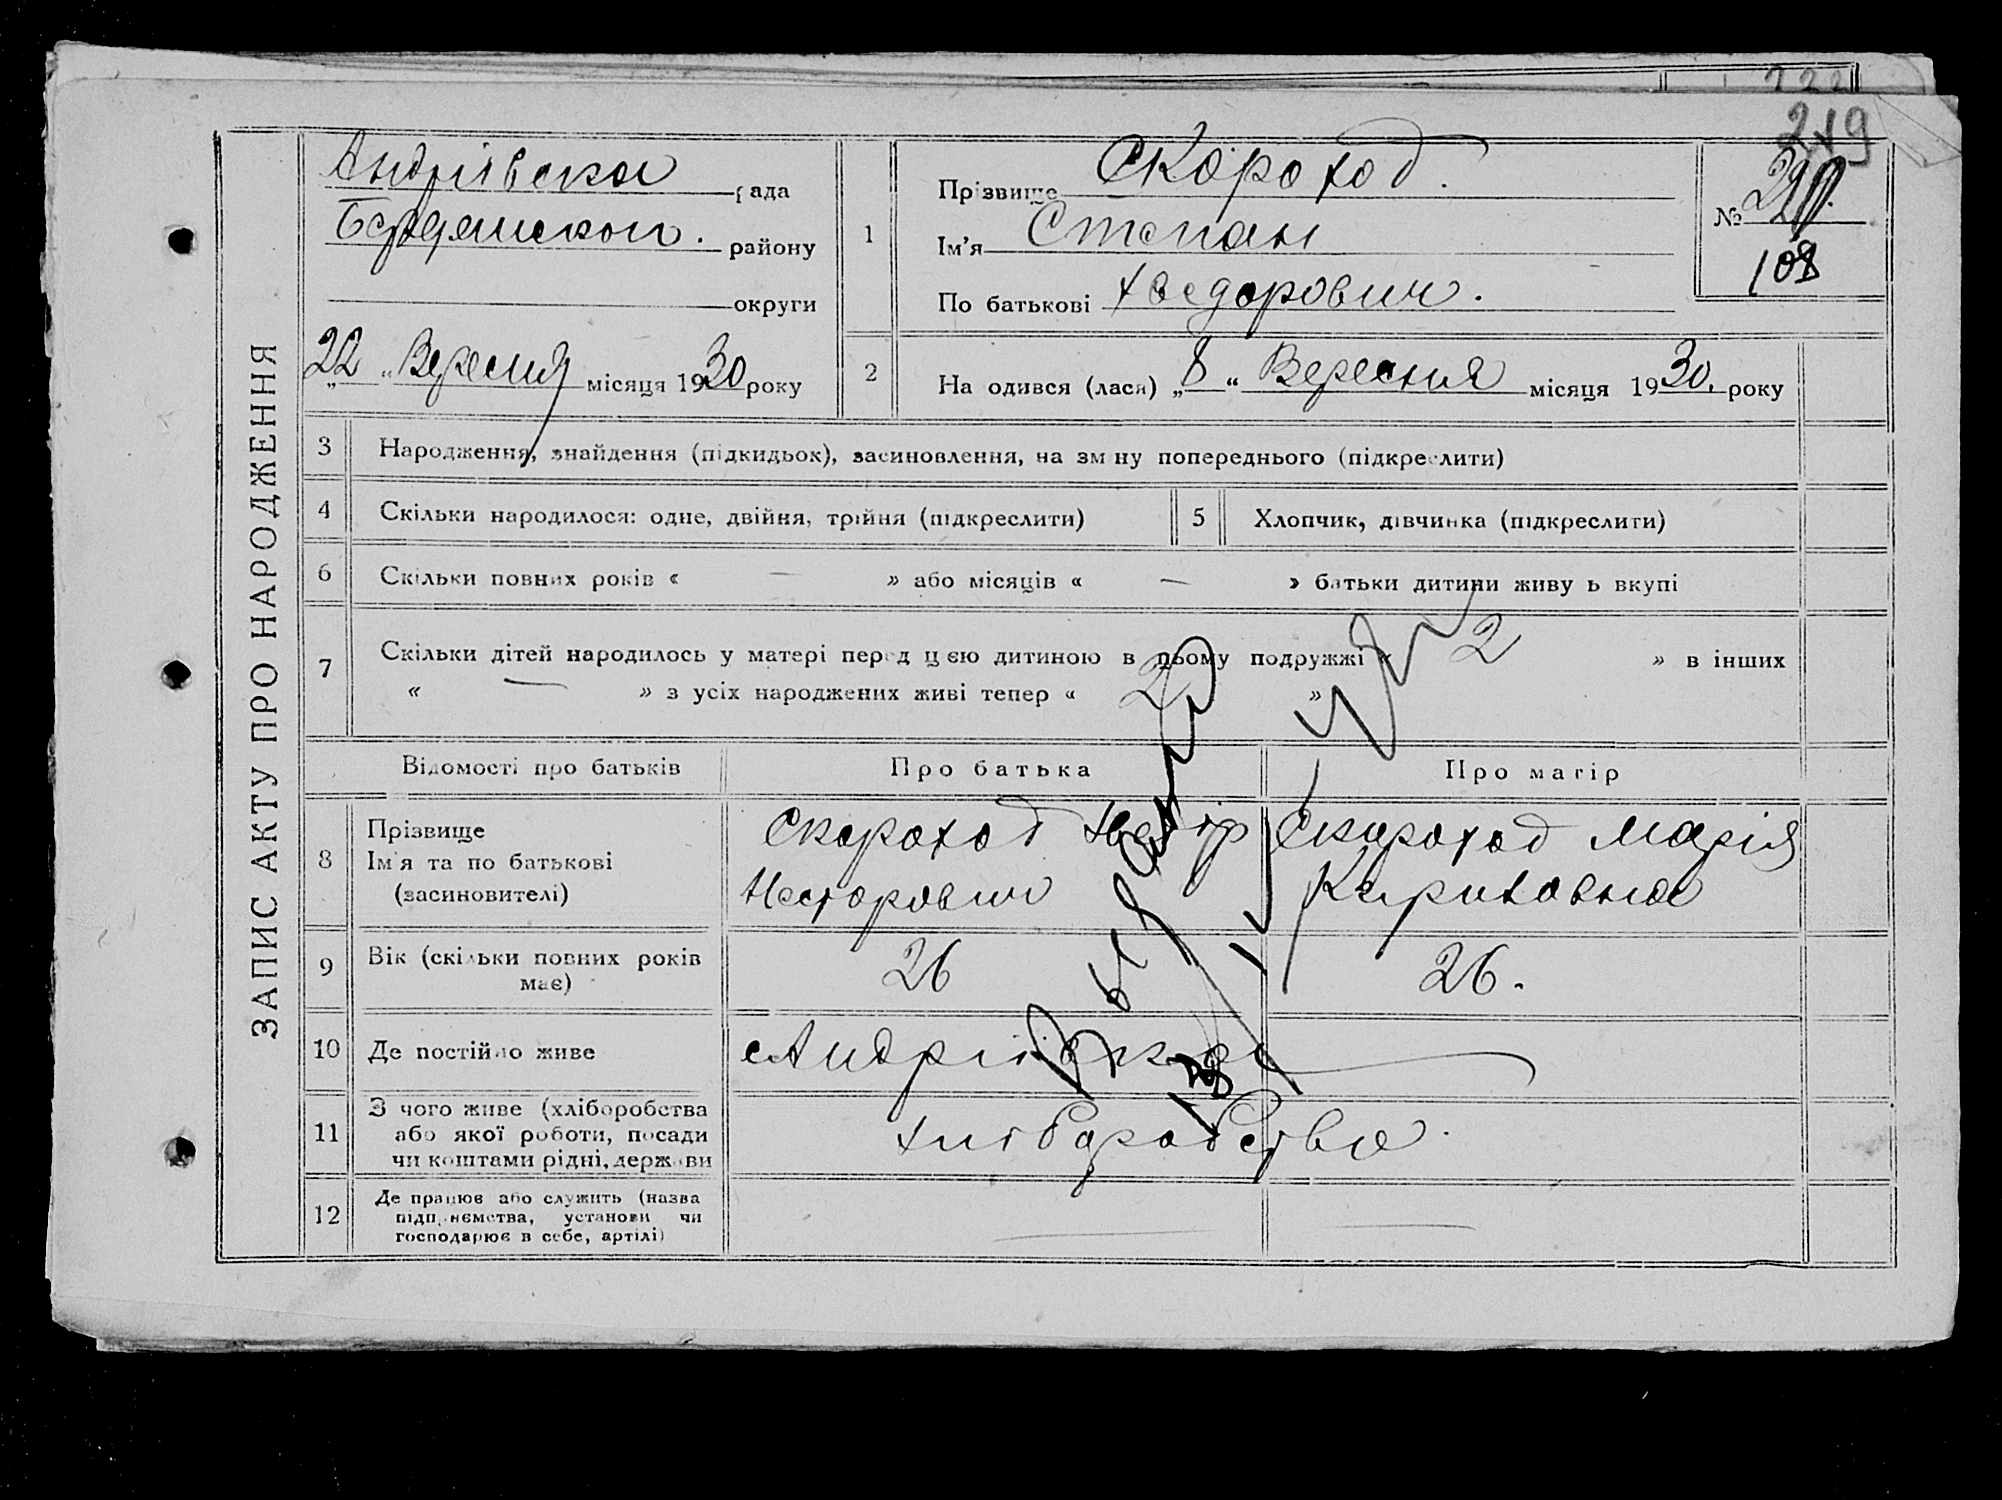 219
ЗАПИС АКТУ ПРО НАРОДЖЕННЯ
Андріівска рада
Бердянскои. району
округи
22 „ “ Вересня місяця 1930 року
1 Прізвище Скороход.
Ім'я Степан
По батькові Хведорович.
№
108
2 На одився (лася) „ 8 “ Вересня місяця 1930. року
3 Народження, знайдення (підкидьок), засиновлення, на зм ну попереднього (підкреслити)
4 Скільки народилося: одне, двійня, трійня (підкреслити) 5 Хлопчик, дівчинка (підкреслити)
6 Скільки повних років « — » або місяців « — » батьки дитини живу ь вкупі
7 Скільки дітей народилось у матері перед цією дитиною в цьому подружжі « 2 » в інших
« — » з усіх народжених живі тепер « 2 »
Відомості про батьків Про батька Про матір
8 Прізвище
Ім'я та по батькові
(засиновителі)
Скороход Хведір
Несторович
Скороход Марія
Кириловна
9 Вік (скільки повних років
має)
26 26.
10 Де постійно живе Андріівка
11 З чого живе (хліборобства
або якої роботи, посади
чи коштами рідні, держави
хліборобство.
12 Де працює або служить (назва
підприємства, установи чи
господарює в себе, артілі)